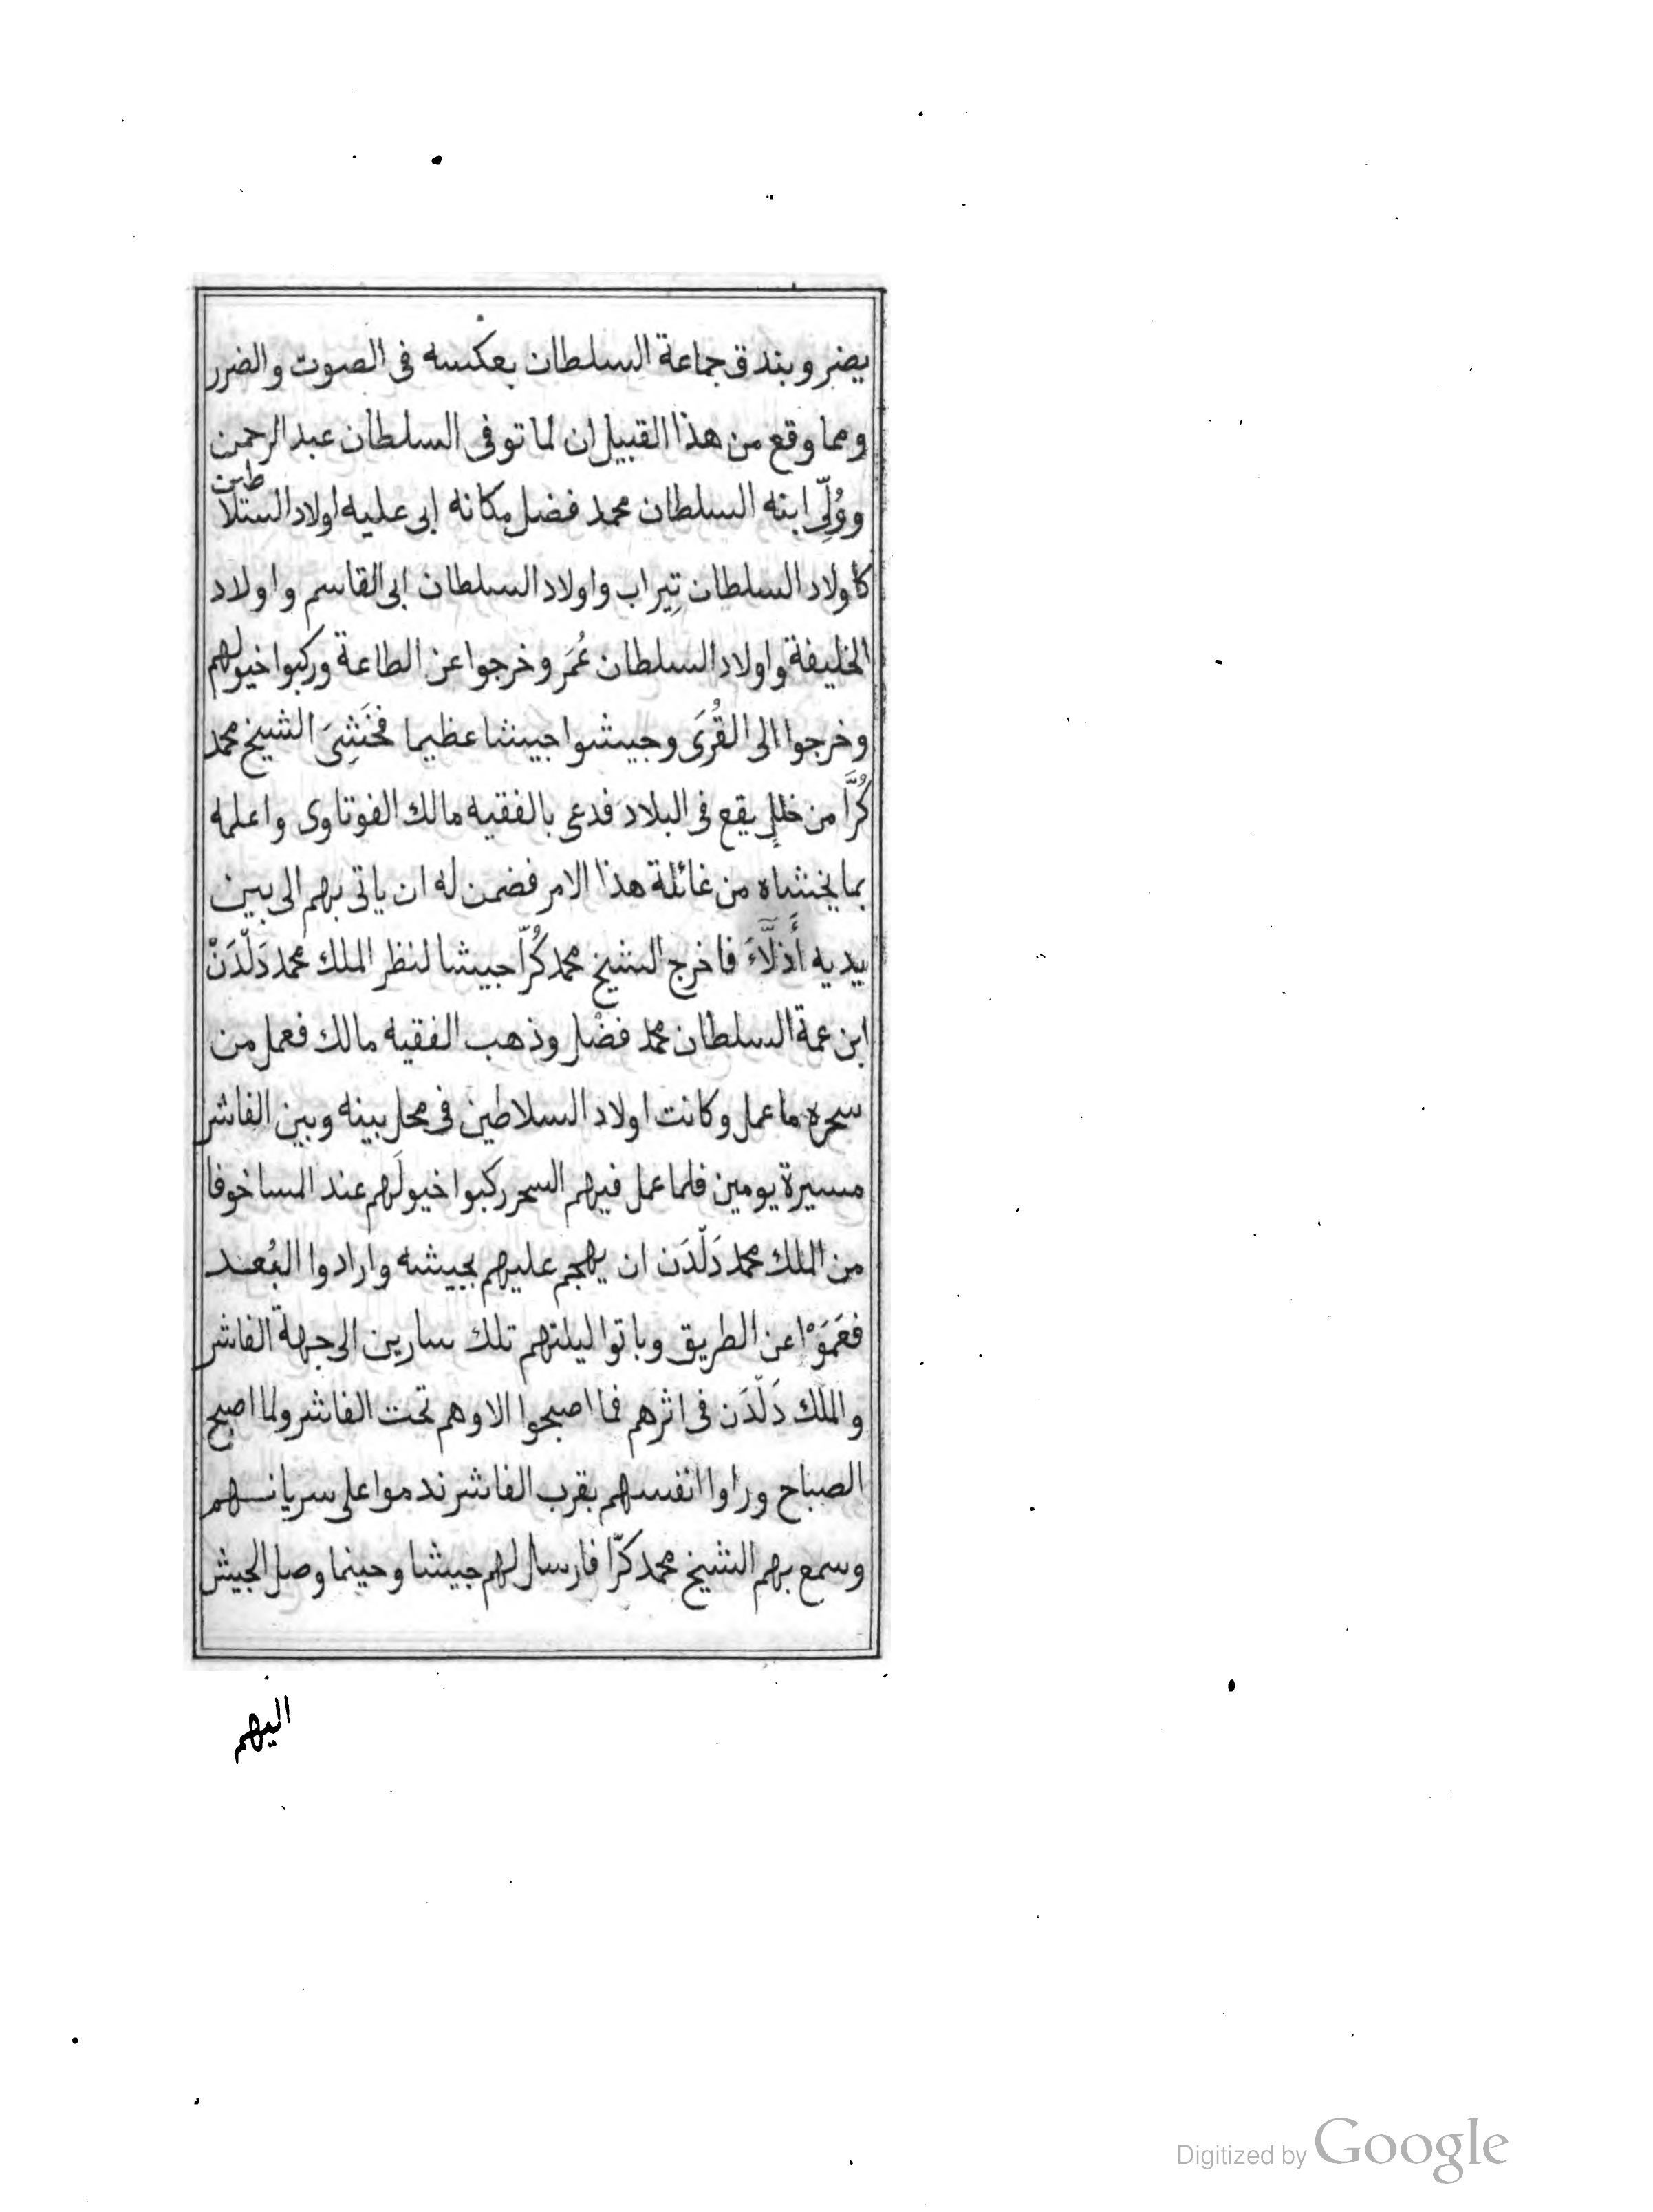 يضر وبندق جماعة السلطان بعكسه فى الصوت والضرر
ومما وقع من هذا القبيل ان لما توفى السلطان عبد الرحمن
ووُلِّى ابنه السلطان محمد فضل مكانه ابى عليه اولاد السلاطين
كاولاد السلطان تِيراب واولاد السلطان ابى القاسم واولاد
الخليفة واولاد السلطان عُمَر وخرجوا عن الطاعة وركبوا خيولهم
وخرجوا الى القُرَى وجيشوا جيشا عظيما فخَشِىَ الشيخ محمد
كُرَّا من خللٍ يقع فى البلاد فدعى بالفقيه مالك الفوتاوى واعلمه
بما يخشاه من غائلة هذا الامر فضمن له ان ياتى بهم الى بين
يديه أَذلَّاءَ فاخرج الشيخ محمد كُرّا جيشا لنظر الملك محمد دَلْدَنْ
ابن عمة السلطان محمد فضْل وذهب الفقيه مالك فعمل من
سحره ما عمل وكانت اولاد السلاطين فى محل بينه وبين الفاشر
مسيرة يومين فلما عمل فيهم السحر ركبوا خيولَهم عند المسا خوفا
من الملك محمد دَلْدَن ان يهجم عليهم بجيشه وارادوا البُعد
فعَمَوْا عن الطريق وباتوا ليلتهم تلك سارين الى جهة الفاشر
والملك دَلْدَن فى اثرهم فما اصبحوا الا وهم تحت الفاشر ولما اصبح
الصباح وراوا انفسهم بقرب الفاشر ندموا على سريانهم
وسمع بهم الشيخ محمد كرّا فارسل لهم جيشا وحينما وصل الجيش
اليهم
Digitized by Google